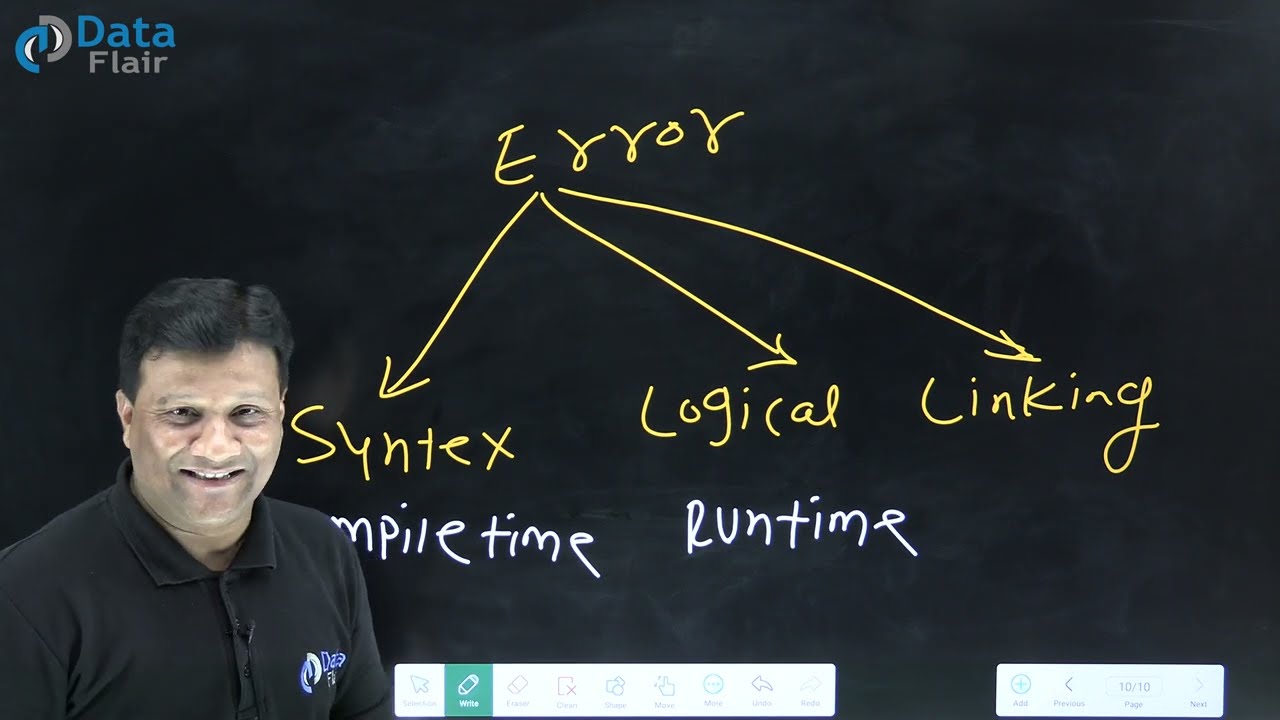 Data
Flair
Error
Syntex Logical Linking
mpiletime Runtime
Data
Flair
Selection Write Eraser Clean Shape Move More Undo Redo
Add Previous 10/10 Page Next